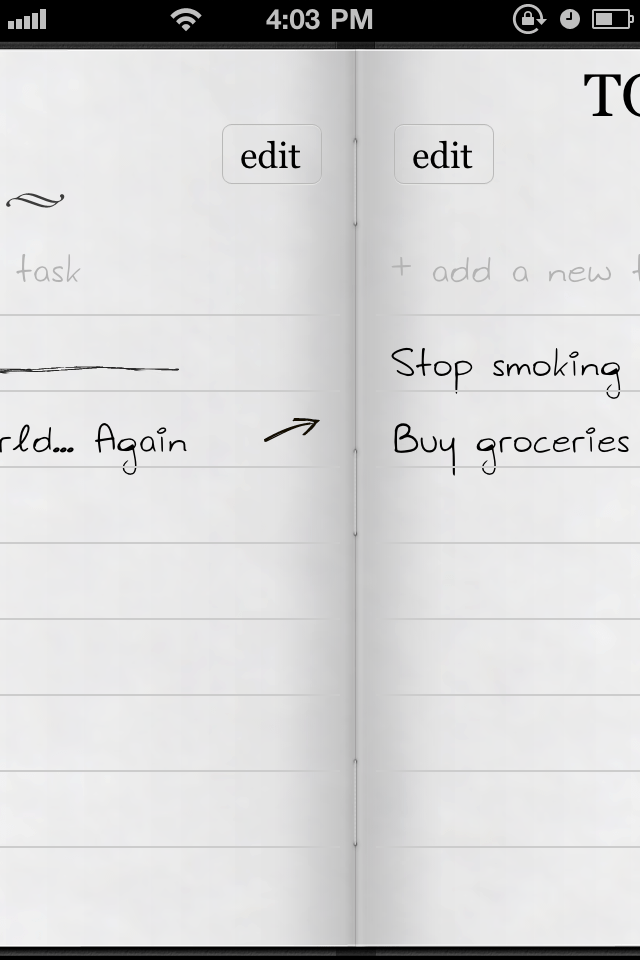 4:03 PM
edit
task
Again
TO
edit
+ add a new
Stop smoking
Buy groceries